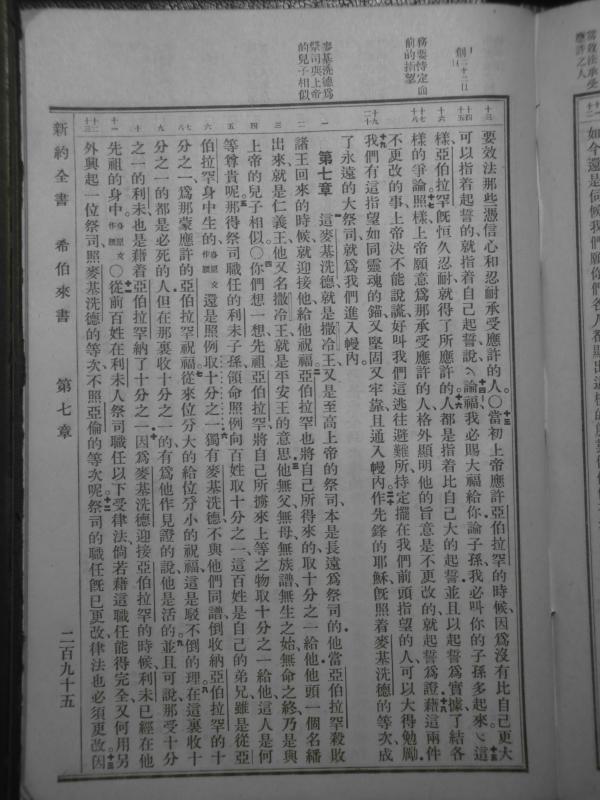 務要恃定面
前的指望
麥基洗德爲
祭司與上帝
的兒子相似
要效法那些憑信心和忍耐承受應許的人〇當初上帝應許亞伯拉罕的時候因爲沒有比自己更大
可以指着起誓的就指着自己起誓說論福我必賜大福給你論子孫我必叫你的子孫多起來這
樣亞伯拉罕旣恒久忍耐就得了所應許的人都是指着比自己大的起誓並且以起誓爲實據了結各
樣的爭論照樣上帝願意爲那承受應許的人格外顯明他的旨意是不更改的就起誓爲證藉這兩件
不更改的事上帝決不能說謊好叫我們這逃往避難所持定擺在我們前頭指望的人可以大得勉勵
我們有這指望如同靈魂的錨又堅固又牢靠且通入幔內作先鋒的耶穌旣照着麥基洗德的等次成
了永遠的大祭司就爲我們進入幔內
第七章 這麥基洗德就是撒冷王又是至高上帝的祭司本是長遠爲祭司的他當亞伯拉罕殺敗
諸王回來的時候就迎接他給他祝福亞伯拉罕也將自己所得來的取十分之一給他他頭一個名繙
出來就是仁義王他又名撒冷王就是平安王的意思他無父無母無族譜無生之始無命之終乃是與
上帝的兒子相似〇你們想一想先祖亞伯拉罕將自己所擄來上等之物取十分之一給他這人是何
等尊貴呢那得祭司職任的利未子孫領命照例向百姓取十分之一這百姓是自己的弟兄雖是從亞
伯拉罕身中生的身原文作腰還是照例取十分之一獨有麥基洗德不與他們同譜倒收納亞伯拉罕的十
分之一爲那蒙應許的亞伯拉罕祝福從來位分大的給位分小的祝福這是駁不倒的理在這裏收十
分之一的都是必死的人但在那裏收十分之一的有爲他作見證的說他是活的並且可說那受十分
之一的利未也是藉着亞伯拉罕納了十分之一因爲麥基洗德迎接亞伯拉罕的時候利未已經在他
先祖的身中身原文作腰〇從前百姓在利未人祭司職任以下受律法倘若藉這職任能得完全又何用另
外興起一位祭司照麥基洗德的等次不照亞倫的等次呢祭司的職任旣已更改律法也必須更改因
新約全書 希伯來書 第七章 二百九十五